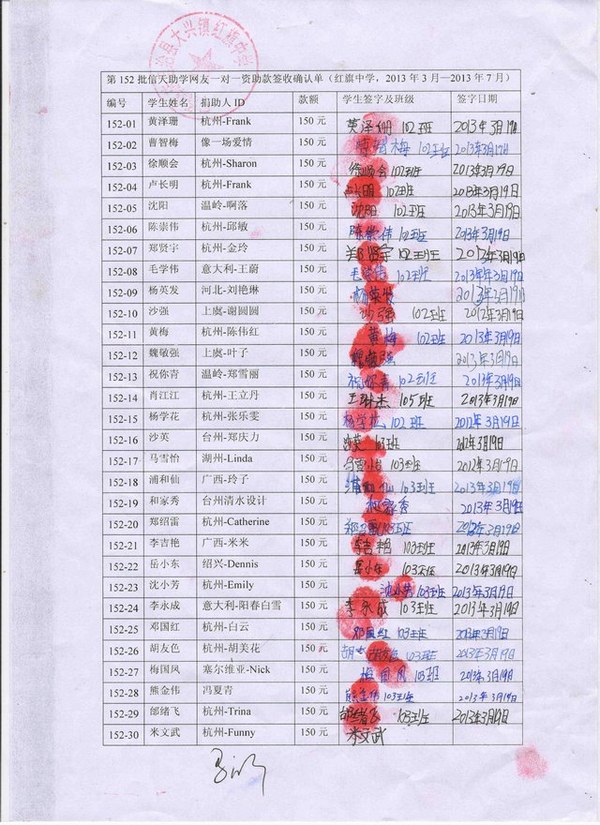 第 152 批信天助学网友一对一资助款签收确认单（红旗中学，2013 年 3 月—2013 年 7 月）
编号 学生姓名 捐助人 ID 款额 学生签字及班级 签字日期
152-01 黄泽珊 杭州-Frank 150 元 黄泽珊 102班 2013年3月19日
152-02 曹智梅 像一场爱情 150 元 102班 2013年3月19日
152-03 徐顺会 杭州-Sharon 150 元 徐顺会 102班 2013年3月19日
152-04 卢长明 杭州-Frank 150 元 102班 2013年3月19日
152-05 沈阳 温岭-啊落 150 元 沈阳 102班 2013年3月19日
152-06 陈崇伟 杭州-邱敏 150 元 陈崇伟 102班 2013年3月19日
152-07 郑贤宇 杭州-金玲 150 元 郑贤宇 102班 2012年3月19日
152-08 毛学伟 意大利-王蔚 150 元 102班 2013年3月19日
152-09 杨英发 河北-刘艳琳 150 元 2013年3月19日
152-10 沙强 上虞-谢圆圆 150 元 沙强 102班 2012年3月19日
152-11 黄梅 杭州-陈伟红 150 元 黄梅 102班 2013年3月19日
152-12 魏敬强 上虞-叶子 150 元 魏敬强 2013年3月19日
152-13 祝你青 温岭-郑雪丽 150 元 祝你青 102班 2013年3月19日
152-14 肖江江 杭州-王立丹 150 元 105班 2013年3月19日
152-15 杨学花 杭州-张乐雯 150 元 102班 2012年3月19日
152-16 沙英 台州-郑庆力 150 元 沙英 103班 2012年3月19日
152-17 马雪怡 湖州-Linda 150 元 103班 2012年3月19日
152-18 浦和仙 广西-玲子 150 元 103班 2013年3月19日
152-19 和家秀 台州清水设计 150 元 2013年3月19日
152-20 郑绍雷 杭州-Catherine 150 元 103班
152-21 李吉艳 广西-米米 150 元 李吉艳 103班 2013年3月19日
152-22 岳小东 绍兴-Dennis 150 元 岳小东 103班 2013年3月19日
152-23 沈小芳 杭州-Emily 150 元 沈小芳 103班 2013年3月19日
152-24 李永成 意大利-阳春白雪 150 元 李永成 103班 2013年3月19日
152-25 邓国红 杭州-白云 150 元 邓国红 103班 2013年3月19日
152-26 胡友色 杭州-胡美花 150 元 103班 2013年3月19日
152-27 梅国风 塞尔维亚-Nick 150 元 梅国风 103班 2013年3月19日
152-28 熊金伟 冯夏青 150 元 103班 2013年3月19日
152-29 邰绪飞 杭州-Trina 150 元 103班 2013年3月19日
152-30 米文武 杭州-Funny 150 元 米文武